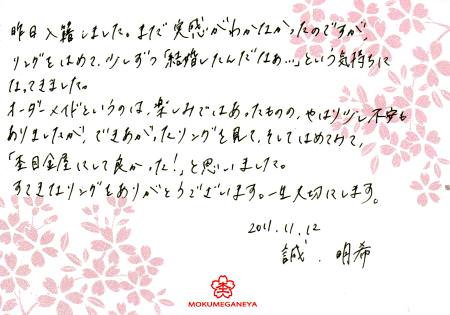 昨日入籍しました。まだ実感がわかなかったのですが、
リングをはめて、少しずつ「結婚したんだなぁ…」という気持ちに
なってきました。
オーダーメイドというのは、楽しみではあったものの、やはり少し不安も
ありましたが、できあがったリングを見て、そしてはめてみて、
「杢目金屋にして良かった!」と思いました。
すてきなリングをありがとうございます。一生大切にします。
2011.11.12
誠. 明希
MOKUMEGANEYA